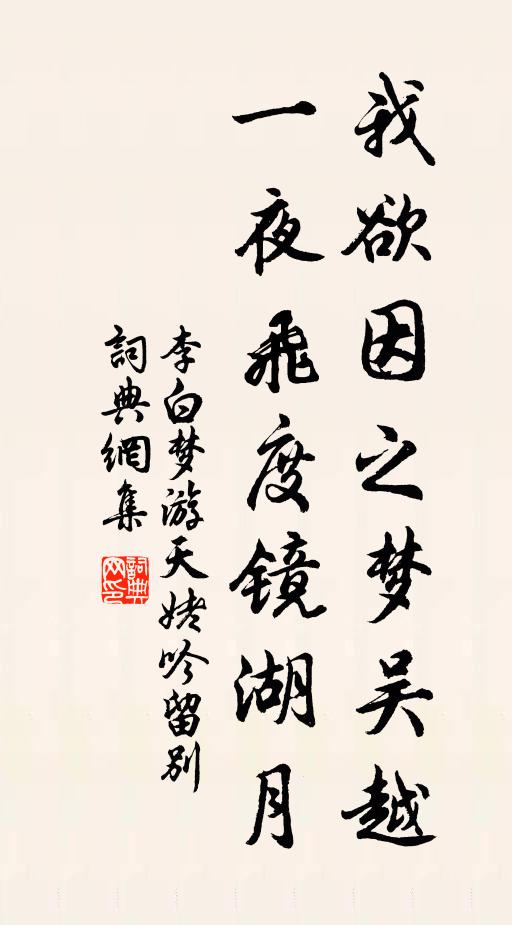 我欲因之梦吴越
一夜飛度镜湖月
李白梦游天姥吟留别
詞典網集
詞典网印